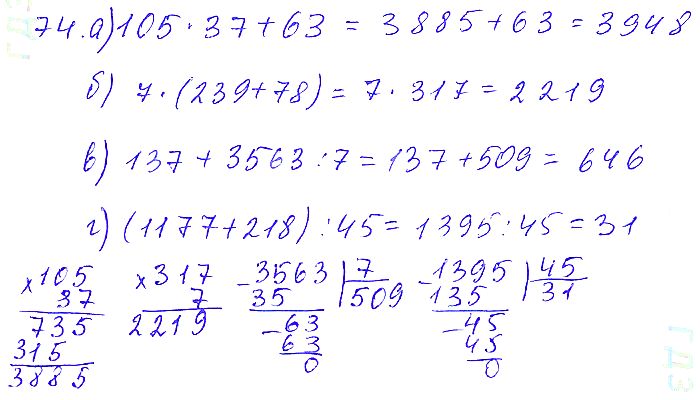 74. а) 105 · 37 + 63 = 3885 + 63 = 3948
б) 7 · (239 + 78) = 7 · 317 = 2219
в) 137 + 3563 : 7 = 137 + 509 = 646
г) (1177 + 218) : 45 = 1395 : 45 = 31
× 105
37
735
315
3885
× 317
7
2219
- 3563 | 7
35 | 509
- 63
63
0
- 1395 | 45
135 | 31
- 45
45
0
ГДЗ